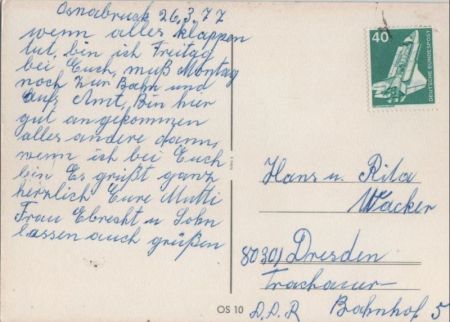 Osnabrück 26.3.77
wenn alles klappen
tut, bin ich Freitag
bei Euch, muß Montag
noch zur Bahn und
aufs Amt, Bin hier
gut angekommen
alles andere dann,
wenn ich bei Euch
bin Es grüßt ganz
herzlich Eure Mutti
Frau Ebrecht u. Sohn
lassen auch grüßen
40
DEUTSCHE BUNDESPOST
Hans u. Rita
Wacker
80301 Dresden
Trachauer
Bahnhof 5
D.D.R
OS 10